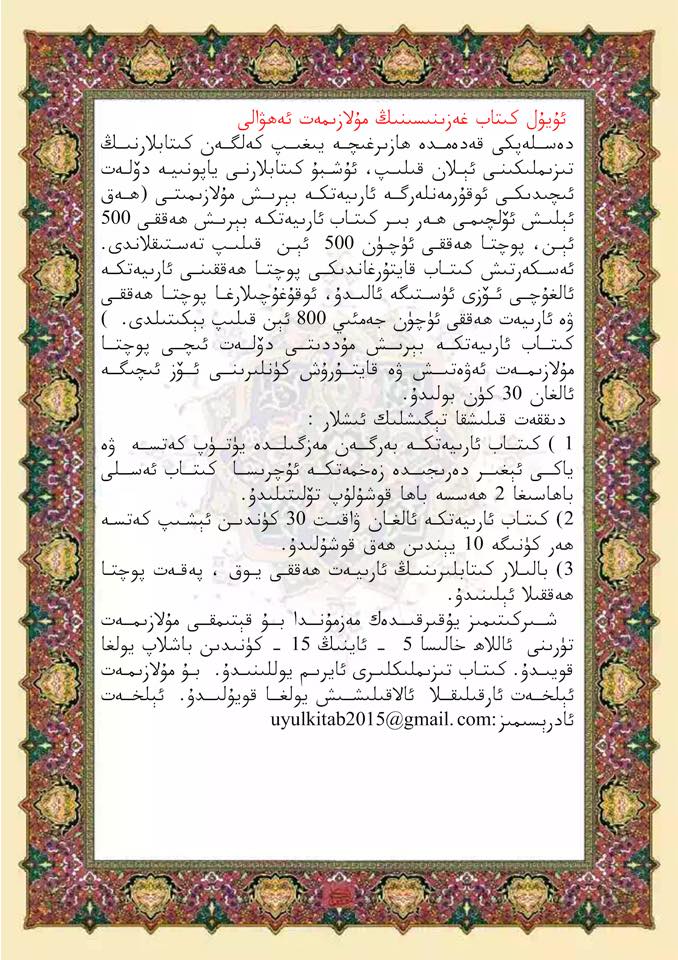 ئۇيۇل كىتاب غەزىنىسىنىڭ مۇلازىمەت ئەھۋالى
دەسلەپكى قەدەمدە ھازىرغىچە يىغىپ كەلگەن كىتابلارنىڭ
تىزىملىكىنى ئېلان قىلىپ، ئۇشبۇ كىتابلارنى ياپونىيە دۆلەت
ئىچىدىكى ئوقۇرمەنلەرگە ئارىيەتكە بېرىش مۇلازىمىتى (ھەق
ئېلىش ئۆلچىمى ھەر بىر كىتاب ئارىيەتكە بېرىش ھەققى 500
ئېن، پوچتا ھەققى ئۈچۈن 500 ئېن قىلىپ تەستىقلاندى.
ئەسكەرتىش كىتاب قايتۇرغاندىكى پوچتا ھەققىنى ئارىيەتكە
ئالغۇچى ئۆزى ئۈستىگە ئالىدۇ، ئوقۇغۇچىلارغا پوچتا ھەققى
ۋە ئارىيەت ھەققى ئۈچۈن جەمئىي 800 ئېن قىلىپ بېكىتىلدى. )
كىتاب ئارىيەتكە بېرىش مۇددىتى دۆلەت ئىچى پوچتا
مۇلازىمەت ئەۋەتىش ۋە قايتۇرۇش كۈنلىرىنى ئۆز ئىچىگە
ئالغان 30 كۈن بولىدۇ.
دىققەت قىلىشقا تېگىشلىك ئىشلار :
1 ) كىتاب ئارىيەتكە بەرگەن مەزگىلدە يۈتۈپ كەتسە ۋە
ياكى ئېغىر دەرىجىدە زەخمەتكە ئۇچرىسا كىتاب ئەسلى
باھاسىغا 2 ھەسسە باھا قوشۇلۇپ تۆلىتىلىدۇ.
2) كىتاب ئارىيەتكە ئالغان ۋاقىت 30 كۈندىن ئېشىپ كەتسە
ھەر كۈنىگە 10 يېندىن ھەق قوشۇلىدۇ.
3) بالىلار كىتابلىرىنىڭ ئارىيەت ھەققى يوق ، پەقەت پوچتا
ھەققىلا ئېلىنىدۇ.
شىركىتىمىز يۇقىرقىدەك مەزمۇندا بۇ قېتىمقى مۇلازىمەت
تۈرىنى ئاللاھ خالىسا 5 - ئاينىڭ 15 - كۈنىدىن باشلاپ يولغا
قويىدۇ. كىتاب تىزىملىكلىرى ئايرىم يوللىنىدۇ. بۇ مۇلازىمەت
ئېلخەت ئارقىلىقلا ئالاقىلىشىش يولغا قويۇلىدۇ. ئېلخەت
ئادرېسىمىز:uyulkitab2015@gmail.com